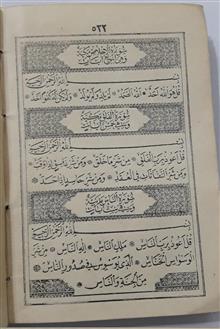 ٥٢٢
سُورَةُ الْاِخْلَاصِ مَكِّيَّةٌ
بِسْمِ اللهِ الرَّحْمٰنِ الرَّحِيمِ
قُلْ هُوَ اللهُ اَحَدٌ اَللهُ الصَّمَدُ لَمْ يَلِدْ وَلَمْ يُولَدْ وَلَمْ يَكُنْ لَهُ كُفُوًا اَحَدٌ
سُورَةُ الْفَلَقِ
بِسْمِ اللهِ الرَّحْمٰنِ الرَّحِيمِ
قُلْ اَعُوذُ بِرَبِّ الْفَلَقِ مِنْ شَرِّ مَا خَلَقَ وَمِنْ شَرِّ غَاسِقٍ اِذَا وَقَبَ
وَمِنْ شَرِّ النَّفَّاثَاتِ فِى الْعُقَدِ وَمِنْ شَرِّ حَاسِدٍ اِذَا حَسَدَ
سُورَةُ النَّاسِ
بِسْمِ اللهِ الرَّحْمٰنِ الرَّحِيمِ
قُلْ اَعُوذُ بِرَبِّ النَّاسِ مَلِكِ النَّاسِ اِلٰهِ النَّاسِ مِنْ شَرِّ
الْوَسْوَاسِ الْخَنَّاسِ الَّذِى يُوَسْوِسُ فِى صُدُورِ النَّاسِ
مِنَ الْجِنَّةِ وَالنَّاسِ